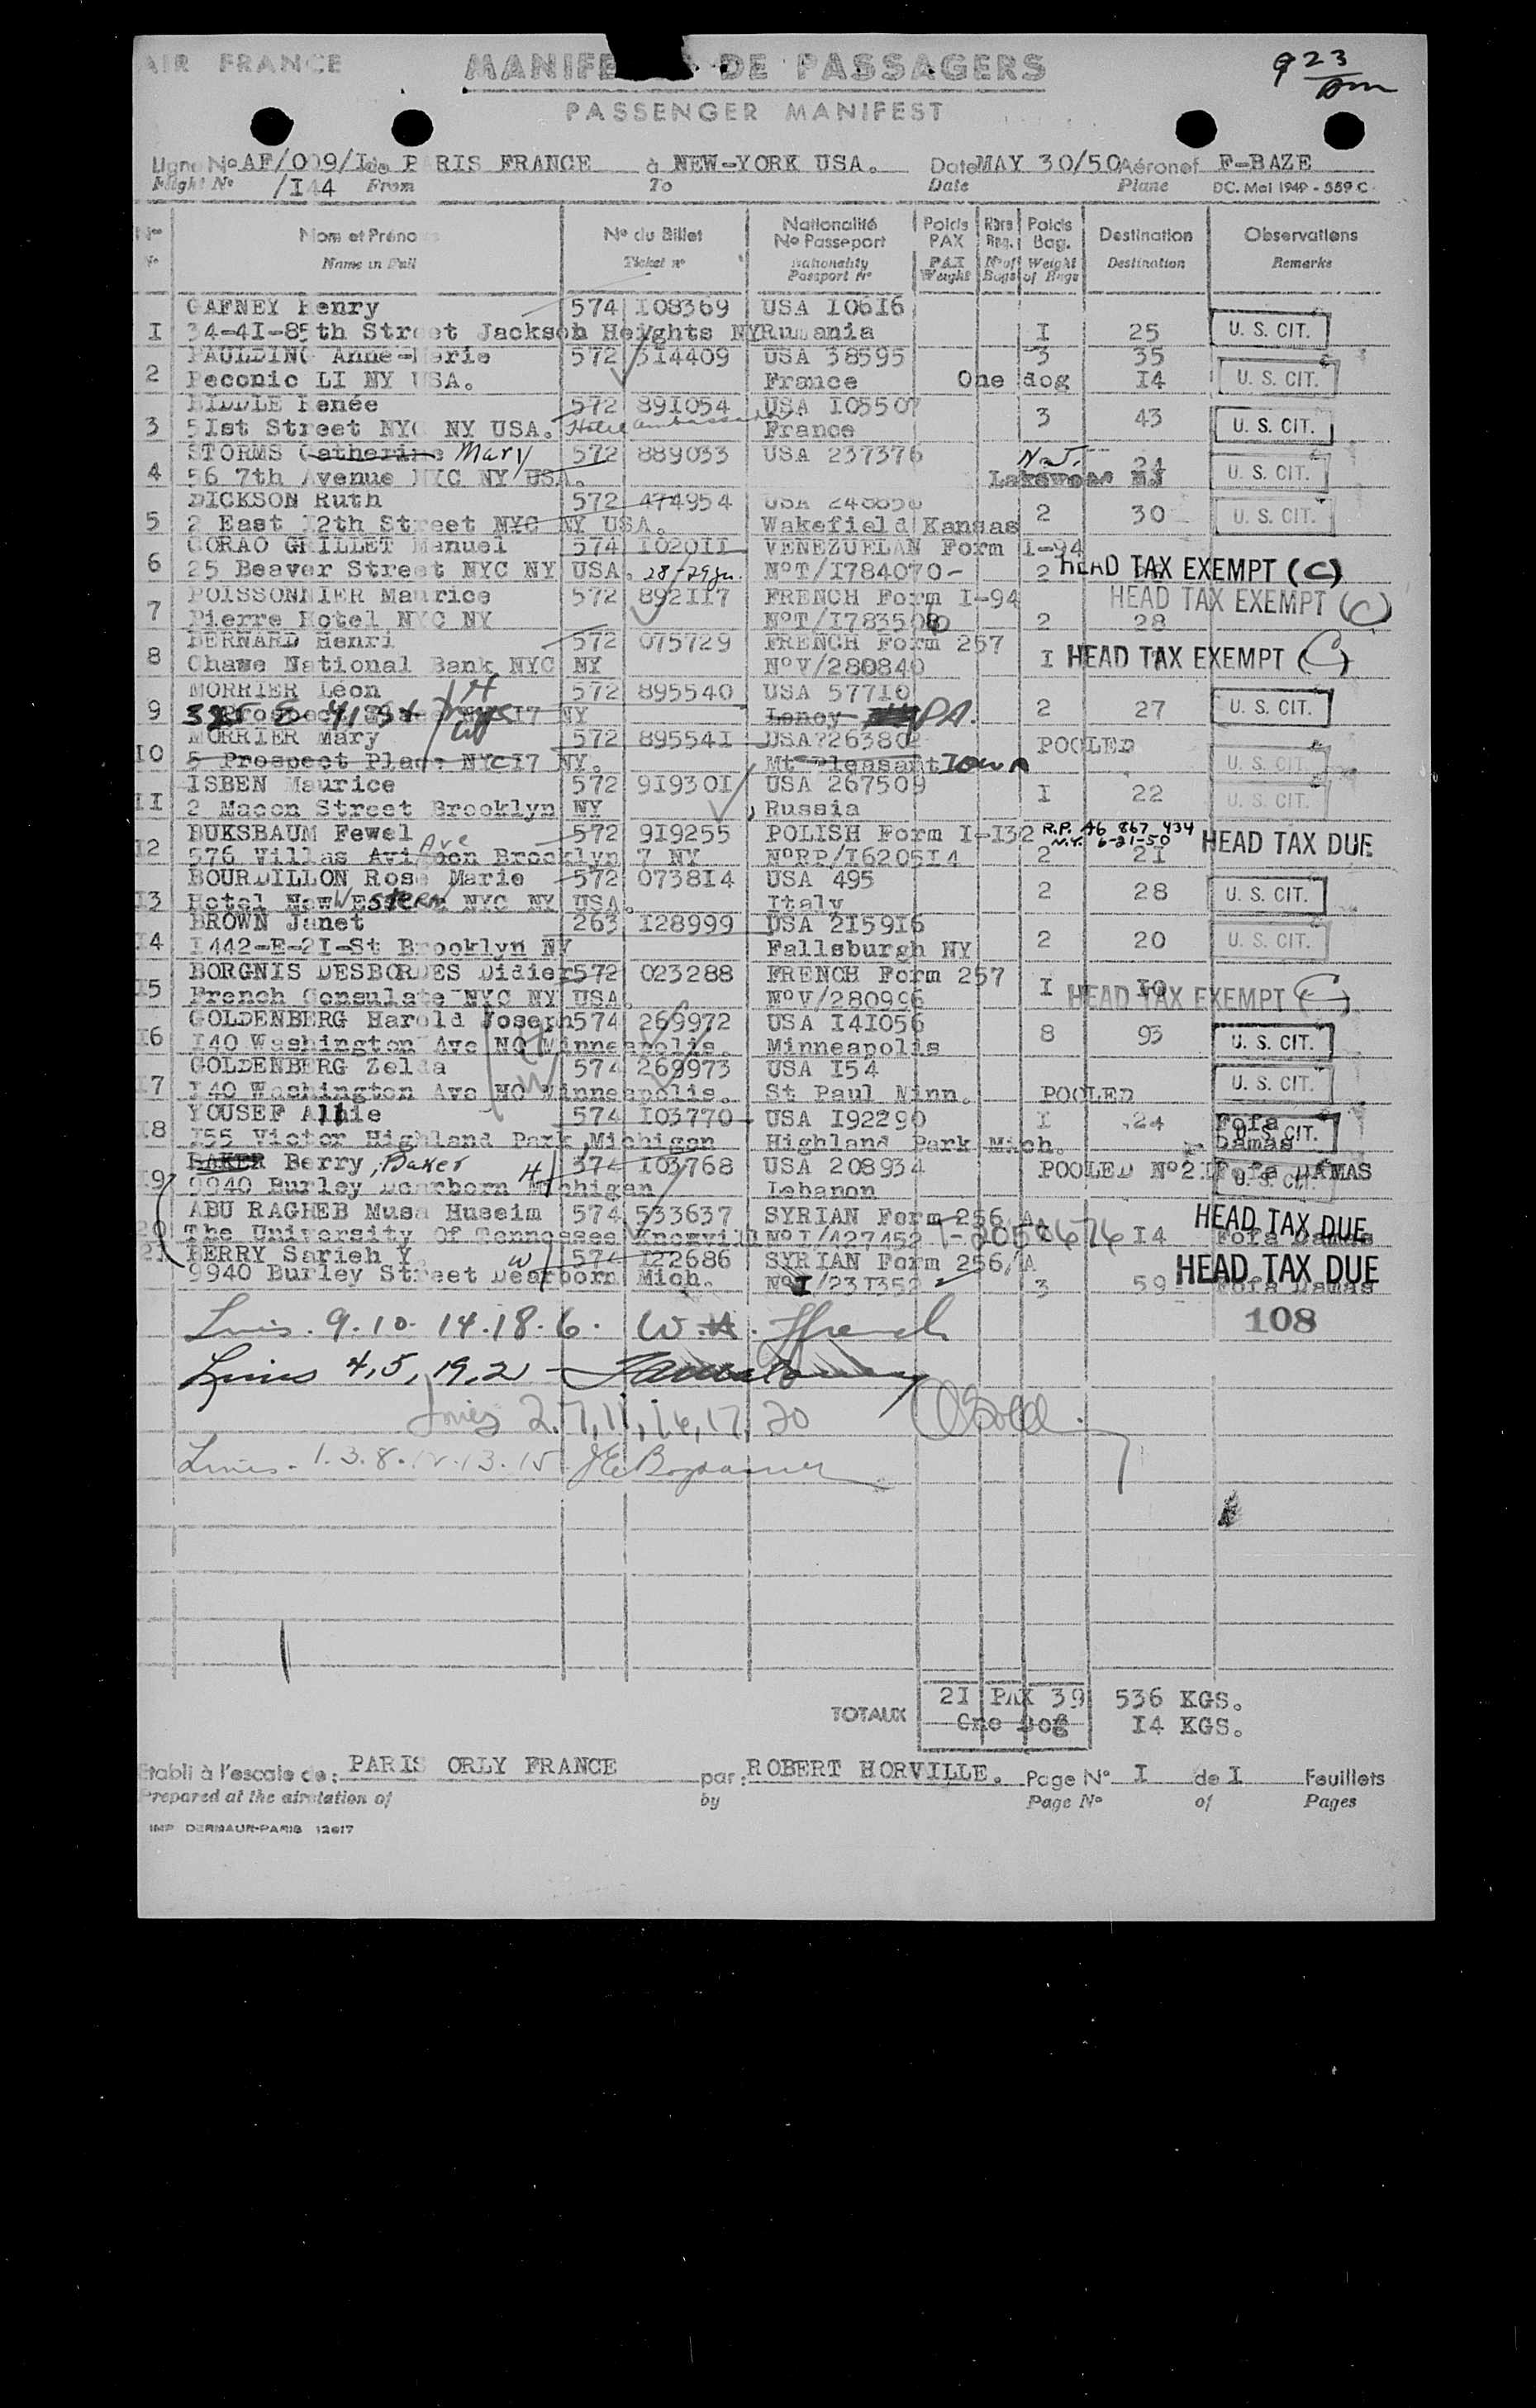 AIR FRANCE
MANIFE DE PASSAGERS
PASSENGER MANIFEST
9 23 pm
Ligne No AF/009/I de PARIS FRANCE à NEW-YORK USA. Date MAY 30/50 Aéronef F-BAZE
Flight No /I44 From To Date Plane DC. Mai 1949 - 559 C
Nom et Prénoms No du Billet Nationalité No Passeport Poids PAX Poids Bag. Destination Observations
Name in Full Ticket no Nationality Passport No PAX Weight No of Bags Weight of Bags Destination Remarks
GAFNEY Henry 574 I08369 USA I06I6
I 34-4I-85th Street Jackson Heights NY Rumania I 25 U. S. CIT.
PAULDING Anne-Marie 572 3I4409 USA 38595 3 35
2 Peconic LI NY USA. France One dog I4 U. S. CIT.
BIDDLE Renée 572 89I054 USA I05507
3 5Ist Street NYC NY USA. Hotel Ambassador France 3 43 U. S. CIT.
STORMS Catherine Mary 572 889033 USA 237376 N.J. 24
4 56 7th Avenue NYC NY USA. U. S. CIT.
DICKSON Ruth 572 474954 USA
5 2 East I2th Street NYC NY USA. Wakefield Kansas 2 30 U. S. CIT.
CORAO GRILLET Manuel 574 I020II VENEZUELAN Form I-94
6 25 Beaver Street NYC NY USA. NoT/I784070- 2 HEAD TAX EXEMPT (C)
POISSONNIER Maurice 572 892II7 FRENCH Form I-94 HEAD TAX EXEMPT (C)
7 Pierre Hotel NYC NY 2 28
BERNARD Henri 572 075729 FRENCH Form 257
8 Chase National Bank NYC NY NoV/280840 I HEAD TAX EXEMPT (C)
MORRIER Leon H 572 895540 USA 577I0
9 325 E 41 St NY PA. 2 27 U. S. CIT.
MORRIER Mary W 572 89554I USA?263802 POOLED
I0 5 Prospect Place NYCI7 NY. Mt Pleasant Iowa U. S. CIT.
ISBEN Maurice 572 9I930I USA 267509
II 2 Macon Street Brooklyn NY Russia I 22 U. S. CIT.
BUKSBAUM Fewel 572 9I9255 POLISH Form I-I32 R.P. A6 867 434 N.Y. 6-21-50
I2 576 Villas Ave Brooklyn 7 NY NoRP/I6205I4 2 2I HEAD TAX DUE
BOURDILLON Rose Marie 572 0738I4 USA 495
I3 Hotel New Western NYC NY USA. Italy 2 28 U. S. CIT.
BROWN Janet 263 I28999 USA 2I59I6
I4 I442-E-2I-St Brooklyn NY Fallsburgh NY 2 20 U. S. CIT.
BORGNIS DESBORDES Didier 572 023288 FRENCH Form 257
I5 French Consulate NYC NY USA. NoV/280996 I I0 HEAD TAX EXEMPT (C)
GOLDENBERG Harold Joseph 574 269972 USA I4I056
I6 I40 Washington Ave NO Minneapolis. H Minneapolis 8 93 U. S. CIT.
GOLDENBERG Zelda 574 269973 USA I54
I7 I40 Washington Ave NO Minneapolis. W St Paul Minn. POOLED U. S. CIT.
YOUSEF Albie 574 I03770 USA I92290 I 24 Fofa
I8 I55 Victor Highland Park Michigan Highland Park Mich. Damas U. S. CIT.
BAKER Berry, Baker H 574 I03768 USA 208934 POOLED No2I Fofa DAMAS
I9 9940 Burley Dearborn Michigan Lebanon U. S. CIT.
ABU RAGHEB Musa Huseim 574 533637 SYRIAN Form 256/A HEAD TAX DUE
20 The University Of Tennessee Knoxvill NoI/427452 I4 Fofa Damas
2I BERRY Sarieh Y. W 574 I22686 SYRIAN Form 256/A HEAD TAX DUE
9940 Burley Street Dearborn Mich. NoI/23I352 3 59 Fofa Damas
Lines. 9.10. 14.18.6. W.A. Ffrench 108
Lines 4,5,19,21
Lines 2.7,11,16,17,20
Lines. 1.3.8.12.13.15.
TOTAUX 2I PAX 39 536 KGS.
One Dog I4 KGS.
Etabli à l'escale de: PARIS ORLY FRANCE par: ROBERT HORVILLE. Page No I de I Feuillets
Prepared at the airstation of by Page No of Pages
IMP DERMAUR-PARIS 12617